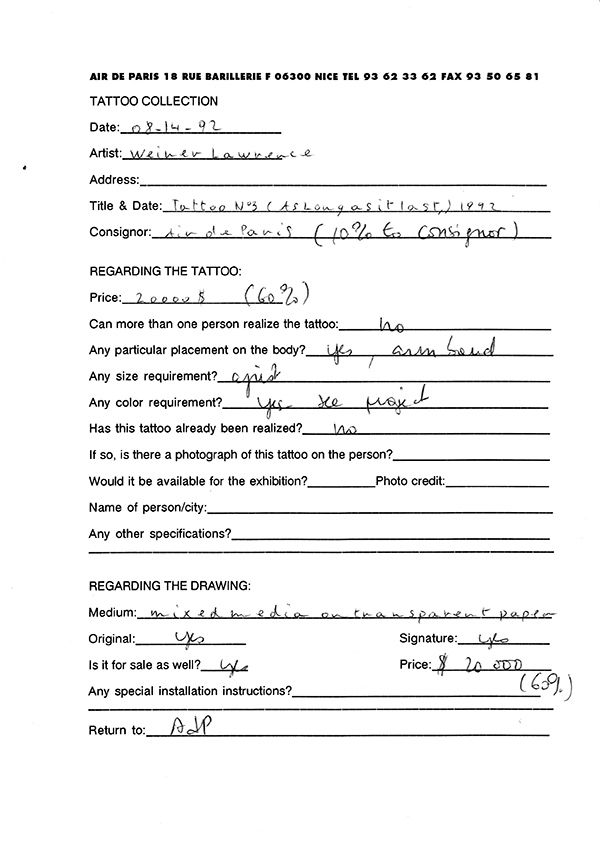 AIR DE PARIS 18 RUE BARILLERIE F 06300 NICE TEL 93 62 33 62 FAX 93 50 65 81
TATTOO COLLECTION
Date: 08-14-92
Artist: Weiner Lawrence
Address:
Title & Date: Tattoo N°3 (As Long as it last,) 1992
Consignor: Air de Paris (10% to consignor)
REGARDING THE TATTOO:
Price: 20000 $ (60%)
Can more than one person realize the tattoo: no
Any particular placement on the body? yes, arm bend
Any size requirement?
Any color requirement? yes see project
Has this tattoo already been realized? no
If so, is there a photograph of this tattoo on the person?
Would it be available for the exhibition? Photo credit:
Name of person/city:
Any other specifications?
REGARDING THE DRAWING:
Medium: mixed media on transparent paper
Original: yes Signature: yes
Is it for sale as well? yes Price: $ 20 000
(60%)
Any special installation instructions?
Return to: AdP